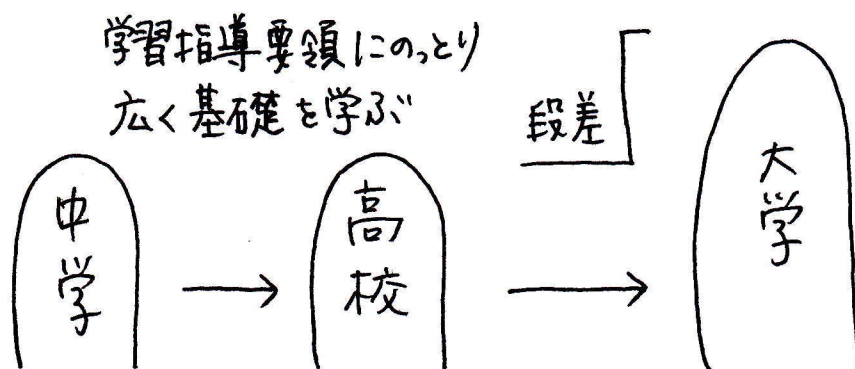 学習指導要領にのっとり
広く基礎を学ぶ
段差
中学
高校
大学